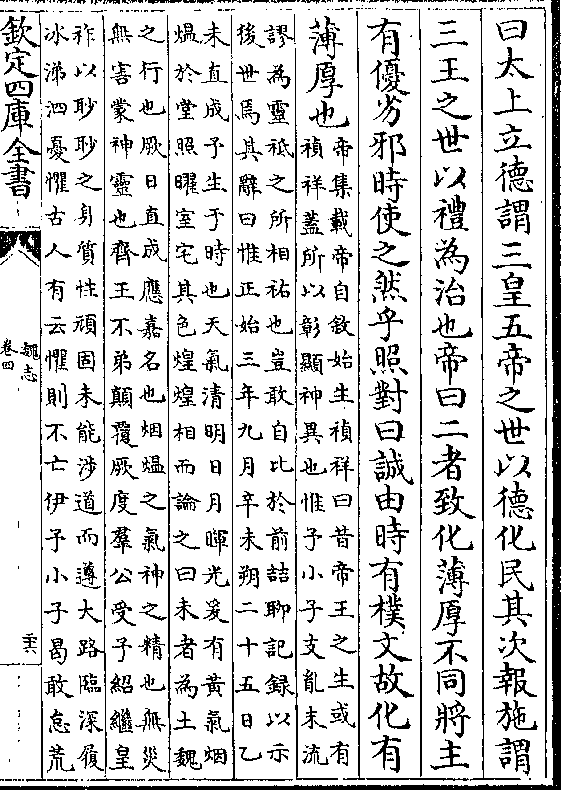 曰太上立德謂三皇五帝之世以德化民其次報施謂
三王之世以禮為治也帝曰二者致化薄厚不同將主
有優劣邪時使之然乎照對曰誠由時有樸文故化有
薄厚也
帝集載帝自敘始生禎祥曰昔帝王之生或有
禎祥蓋所以彰顯神異也惟予小子支胤末流
謬為靈祇之所相祐也豈敢自比於前喆聊記録以示
後世焉其辭曰惟正始三年九月辛未朔二十五日乙
未直成予生于時也天氣清明日月暉光爰有黃氣烟
熅於堂照曜室宅其色煌煌相而論之曰未者為土魏
之行也厥日直成應嘉名也烟熅之氣神之精也無災
無害蒙神靈也齊王不弟顛覆厥度羣公受予紹繼皇
祚以眇眇之身質性頑固未能涉道而遵大路臨深履
冰涕泗憂懼古人有云懼則不亡伊予小子曷敢怠荒
欽定四庫全書
魏志
卷四
二十六